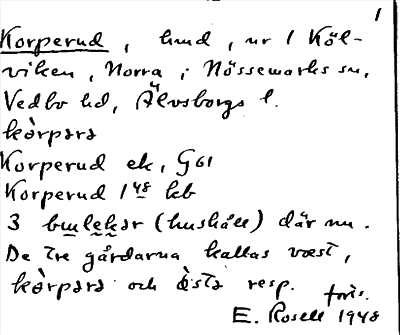 1
Korperud, hmd, nr 1 Köl-
viken, Norra, i Nössemarks sn,
Vedbo hd, Älvsborgs l.
kàrpərə
Korperud ek, G61
Korperud 1 48 kb
3 bruleker (hushåll) där nu.
De tre gårdarna kallas væst,
kàrpərə och àsta resp. toris.
E. Rosell 1948